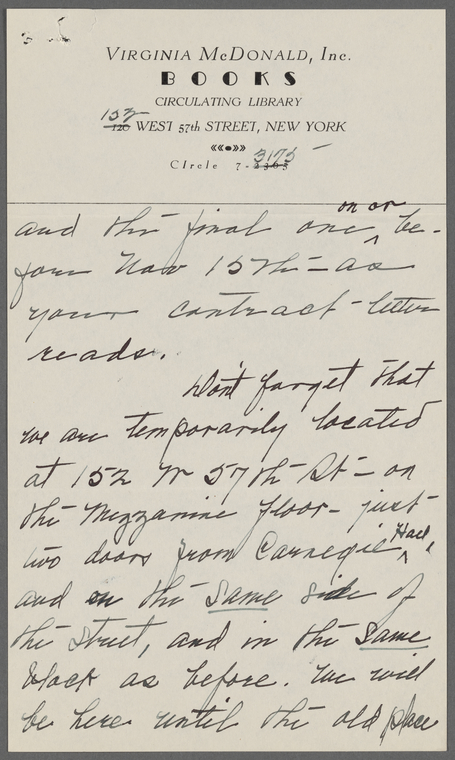 VIRGINIA McDONALD, Inc.
BOOKS
CIRCULATING LIBRARY
152
120 WEST 57th STREET, NEW YORK
3175
CIrcle 7-
on or
and the final one ^ be-
fore Nov 15th - as
your contract-letter
reads.
Don't forget that
we are temporarily located
at 152 W 57th St - on
the Mezzanine floor - just
two doors from Carnegie ^ Hall,
and on the same side of
the street, and in the same
block as before. We will
be here until the old place